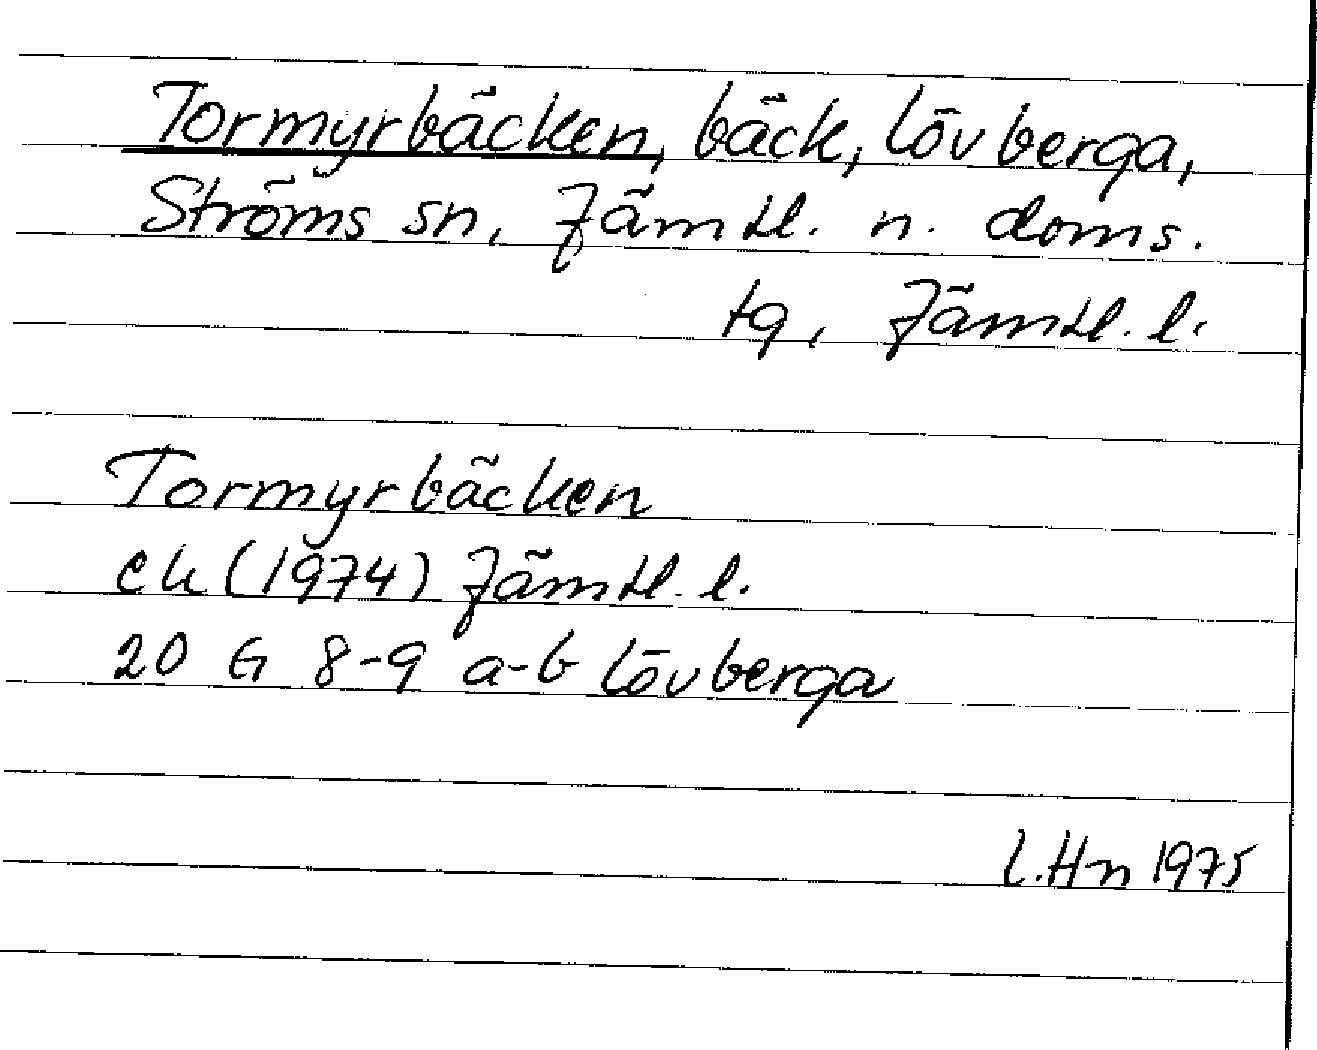 Tormyrbäcken, bäck, Lövberga,
Ströms sn, Jämtl. n. doms.
tg, Jämtl. l.
Tormyrbäcken
ek (1974) Jämtl. l.
20 G 8-9 a-b Lövberga
L.Hn 1975